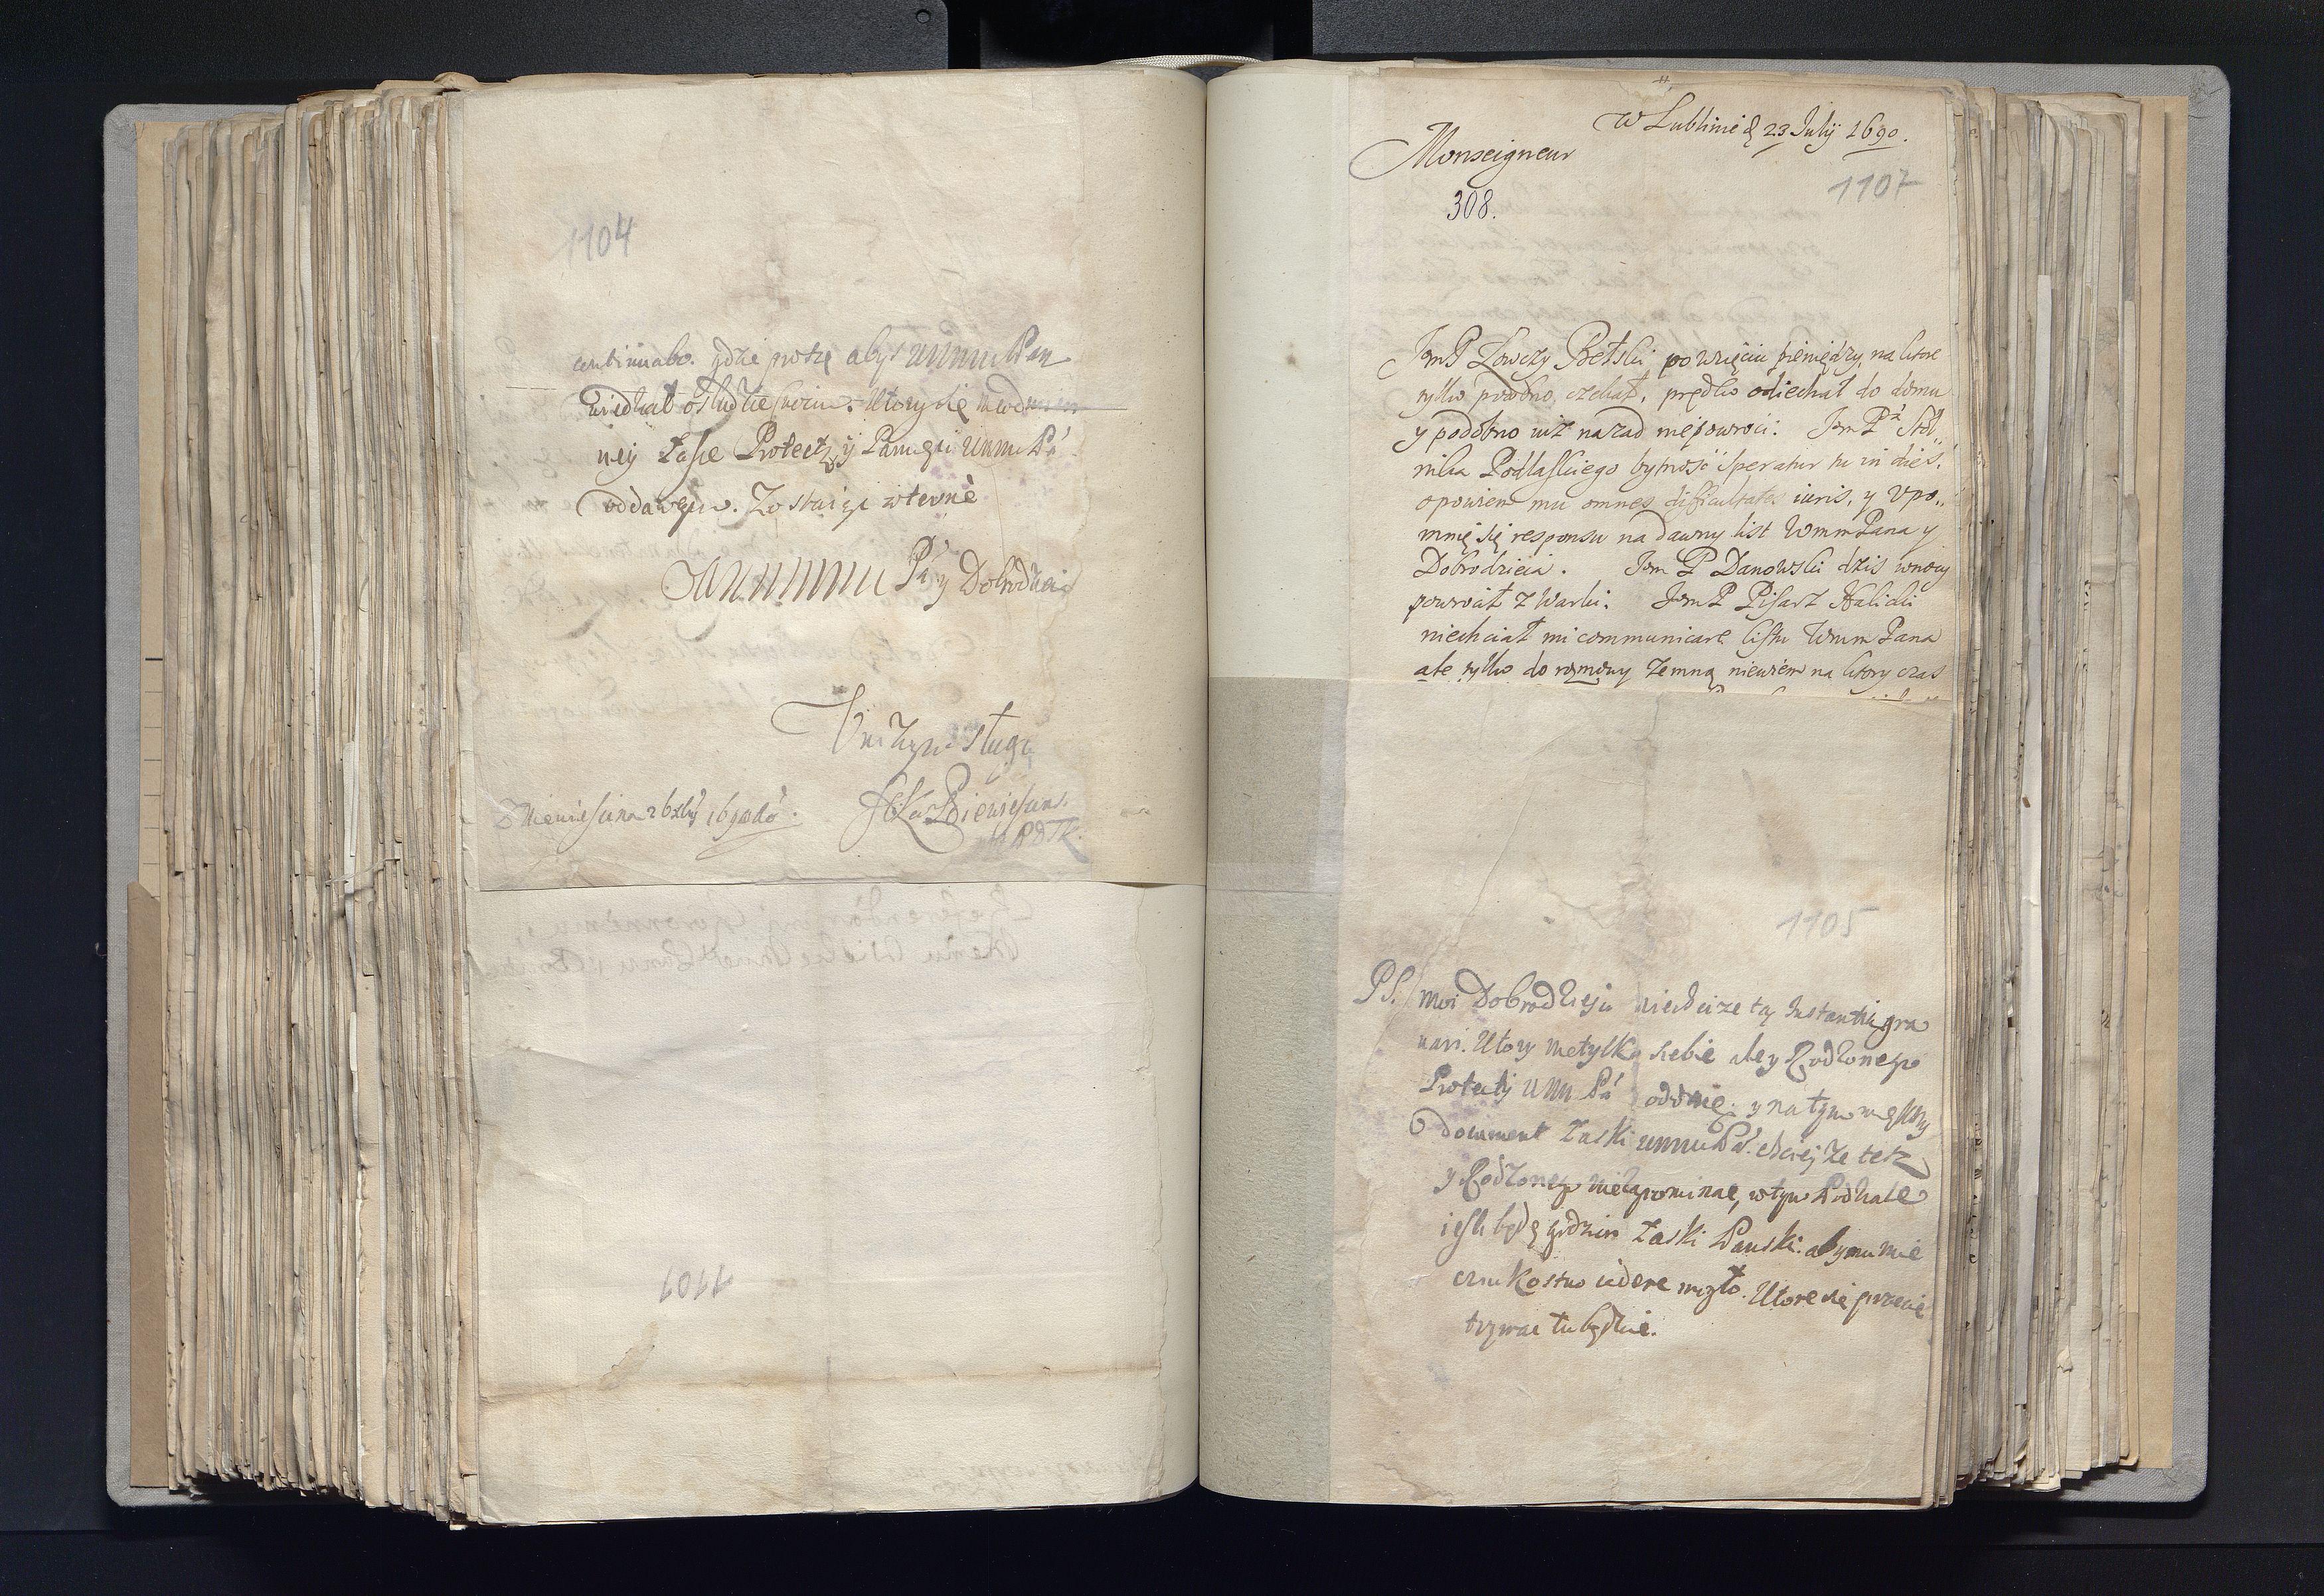 1104
continuabo. gdzie proszę abyś WMM Pan
wiedział o słudze swoim. Ktory się
ney łasce Protectyi y Pamięci WMM Pa
oddawszy. Zostaię wiernie
WMM Pa y Dobrodzieia
Uniżonym sługą
1101
w Lublinie d 23 Julij 1690.
Monseigneur
1107
308.
JmP Łowczy Bełski po wzięciu pieniędzy, na ktore
tylko podobno czekał, prędko odiechał do domu
y podobno iuż nazad niepowroci. Jm Pa Stol
nika Podlaskiego bytność speratur tu in dies,
opowiem mu omnes difficultates iuris, y Upo„
mnię się responsu na dawny list WmmPana y
Dobrodzieia. Jm P Danowski dziś w nocy
powrócił z Warki. JmP Pisarz Halicki
niechciał mi communicare listu Wmm Pana
ale tylko do rozmowy zemną niewiem na ktory czas
1105
PS. Moi Dobrodzieju niechcize tą Instantią gra
vari. Ktory nietylko siebie ale y Rodzonego
Protectij WMM Pa oddaię: y na tym większy
document łaski WMM Pa. chciey ze tesz
y Rodzonego niezapominac, w tym Podziale
iesli będę godzien łaski Panski. aby mu nie
cedere mogło. Ktore się przecie
trzymac tu będzie.